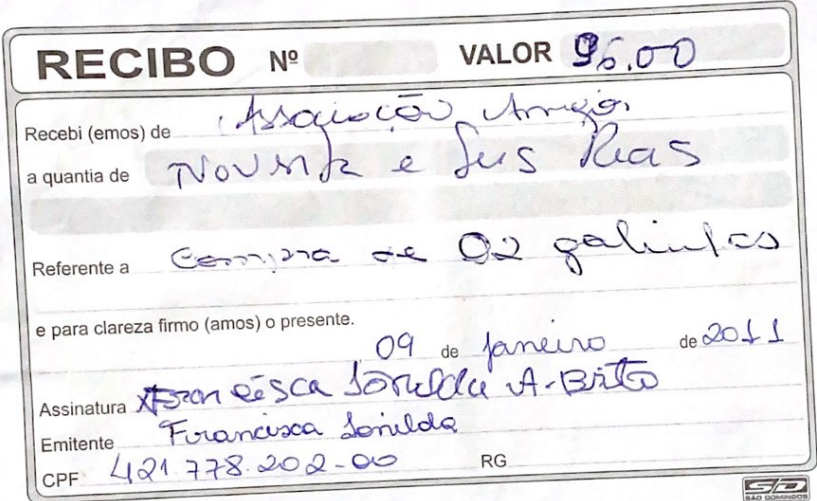 RECIBO Nº VALOR 96.00
Recebi (emos) de Associação Amigos
a quantia de Noventa e Seis Reas
Referente a Compra de 02 galinhas
e para clareza firmo (amos) o presente.
09 de Janeiro de 2011
Assinatura Francisca Sonilda A. Brito
Emitente Francisca Sonilda
CPF 421.778.202-00 RG
SD
SÃO DOMINGOS